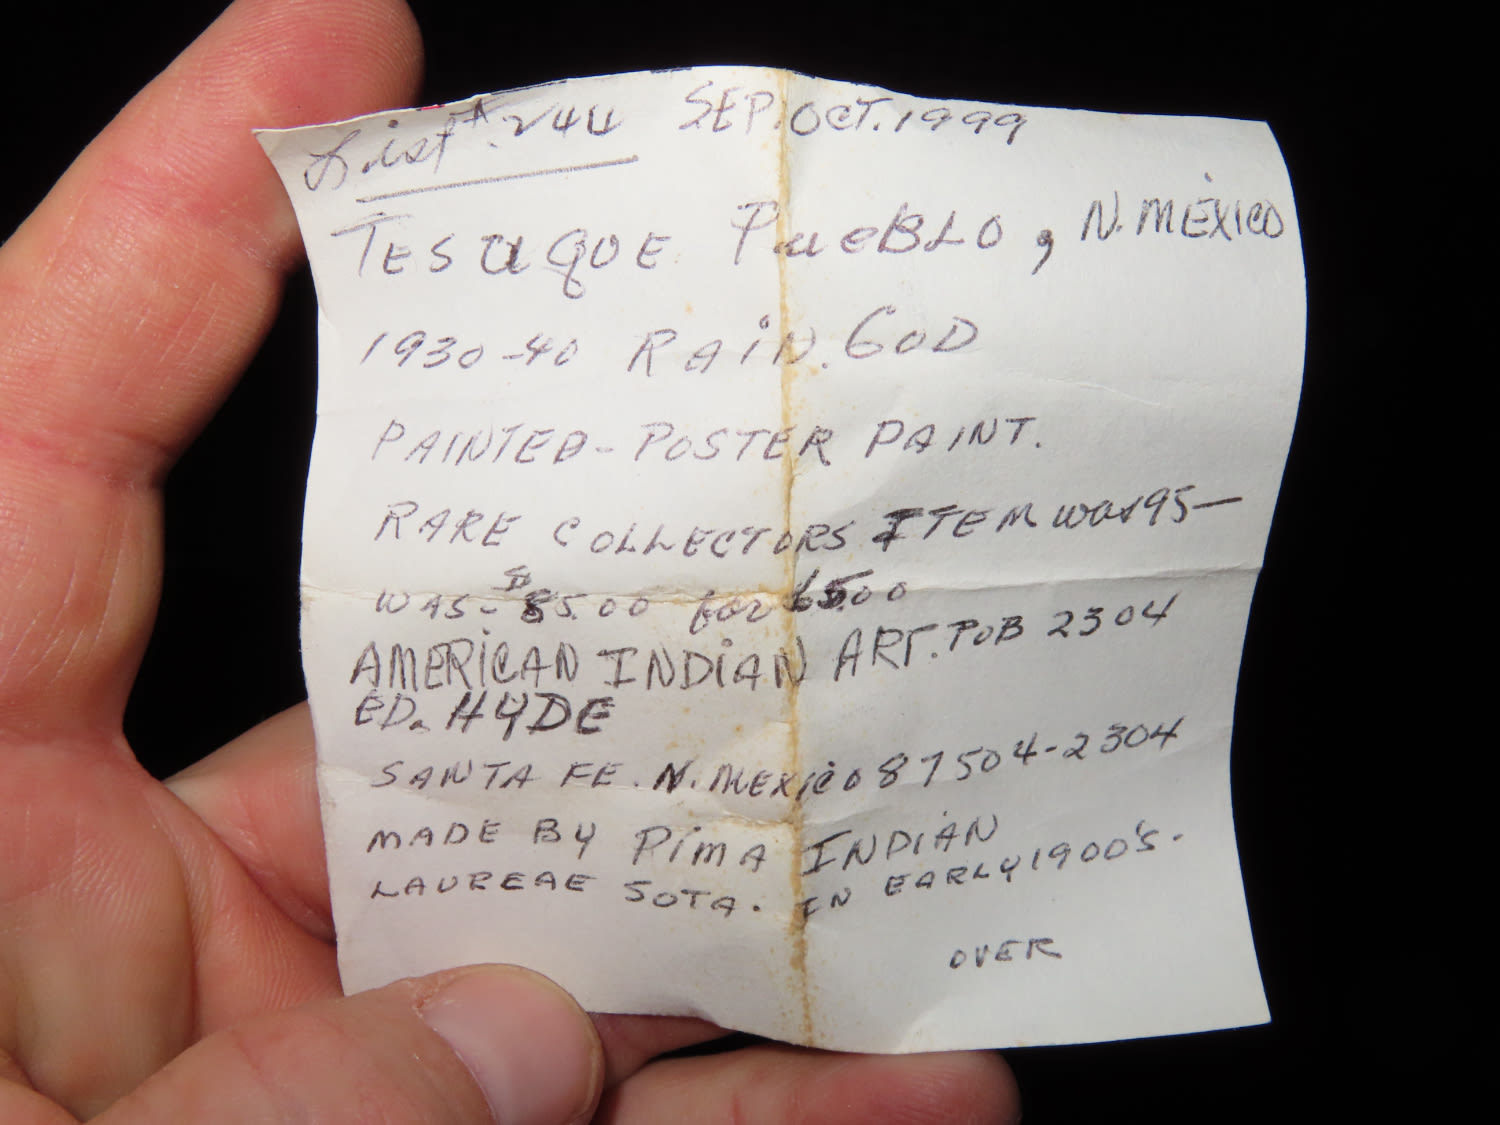 List #. 244 SEP. OCT. 1999
TESUQUE PUEBLO, N. MEXICO
1930-40 RAIN. GOD
PAINTED-POSTER PAINT.
RARE COLLECTORS ITEM was 95—
WAS-$85.00 for 65.00
AMERICAN INDIAN ART. POB 2304
ED. HYDE
SANTA FE. N. MEXICO 87504-2304
MADE BY PIMA INDIAN
LAUREAE SOTA. IN EARLY 1900's.
OVER